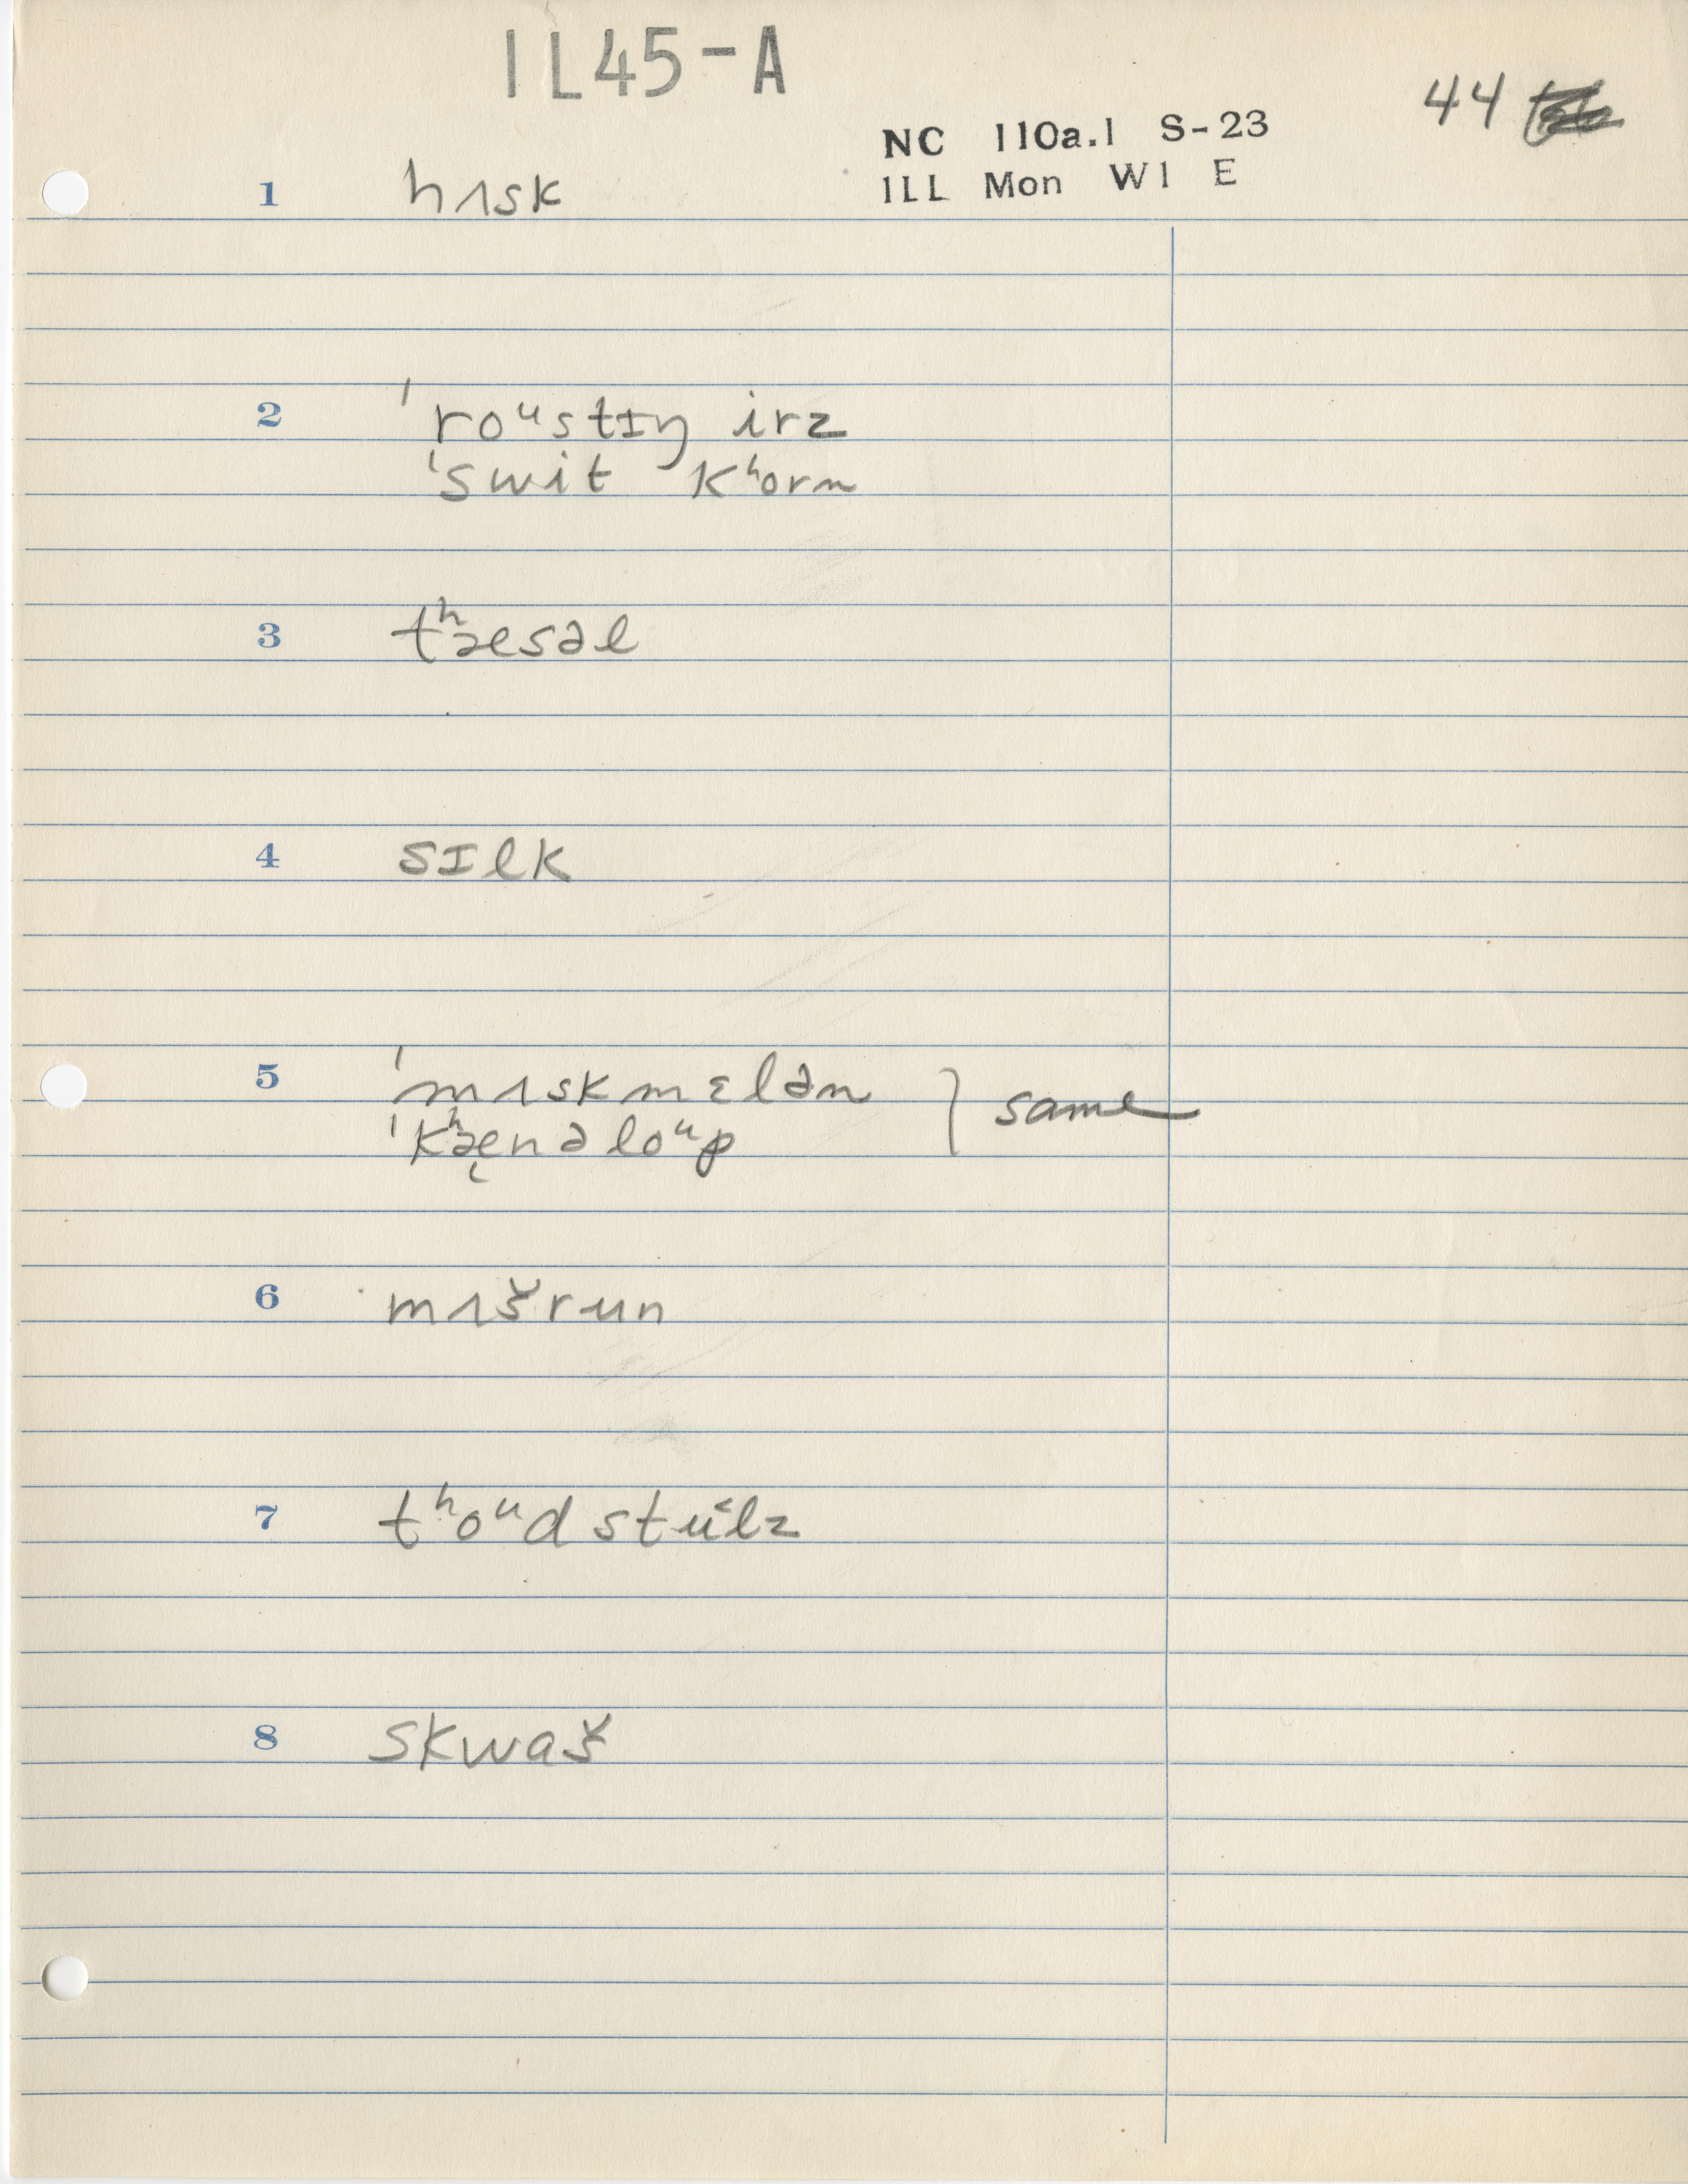 IL45-A
44
NC 110a.1 S-23
ILL Mon W1 E
1 hʌsk
2 ˈroᵘstɪŋ irz
ˈswit kʰorn
3 tʰæsəl
4 sɪlk
5 ˈmʌskmɛlən
ˈkʰæ̨nəloᵘp } same
6 mʌšrun
7 tʰoᵘdstu˂lz
8 skwaš